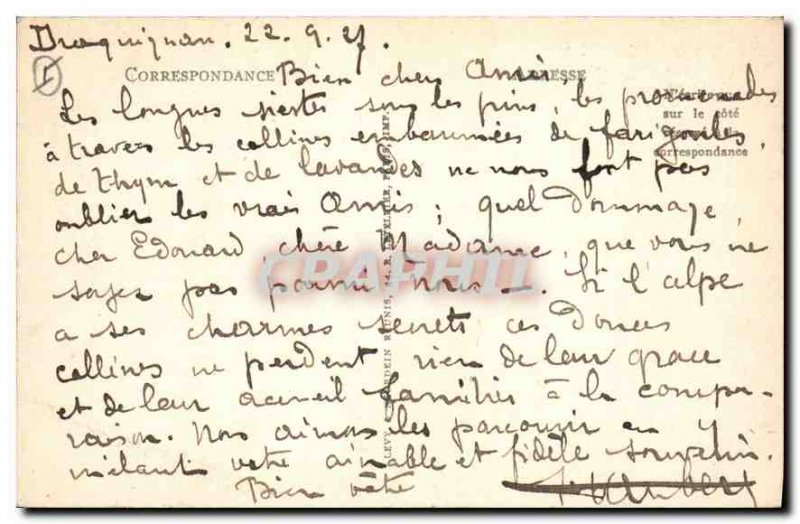 Draguignan. 22. 9. 27.
CORRESPONDANCE Bien chers Amis,
Les longues siestes sous les pins, les promenades
à travers les collines embaumées de farigoules,
sur le côté
correspondance
de thym et de lavandes ne nous font pas
oublier les vrais Amis ; quel dommage,
cher Edouard, chère Madame, que vous ne
soyez pas parmi nous —. Si l'alpe
a ses charmes secrets ces douces
collines ne perdent rien de leur grace
et de leur accueil familier à la compa-
raison. Nous aimons les parcourir en y
mêlant votre aimable et fidèle souvenir.
Bien vôtre
CRAPHIL